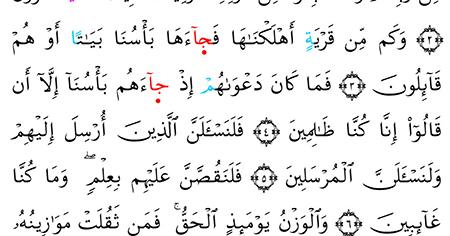 ﴿٣﴾ وَكَم مِّن قَرْيَةٍ أَهْلَكْنَـٰهَا فَجَآءَهَا بَأْسُنَا بَيَـٰتًا أَوْ هُمْ
قَآئِلُونَ ﴿٤﴾ فَمَا كَانَ دَعْوَىٰهُمْ إِذْ جَآءَهُم بَأْسُنَآ إِلَّآ أَن
قَالُوٓا۟ إِنَّا كُنَّا ظَـٰلِمِينَ ﴿٥﴾ فَلَنَسْـَٔلَنَّ ٱلَّذِينَ أُرْسِلَ إِلَيْهِمْ
وَلَنَسْـَٔلَنَّ ٱلْمُرْسَلِينَ ﴿٦﴾ فَلَنَقُصَّنَّ عَلَيْهِم بِعِلْمٍ ۖ وَمَا كُنَّا
غَآئِبِينَ ﴿٧﴾ وَٱلْوَزْنُ يَوْمَئِذٍ ٱلْحَقُّ ۚ فَمَن ثَقُلَتْ مَوَٰزِينُهُۥ